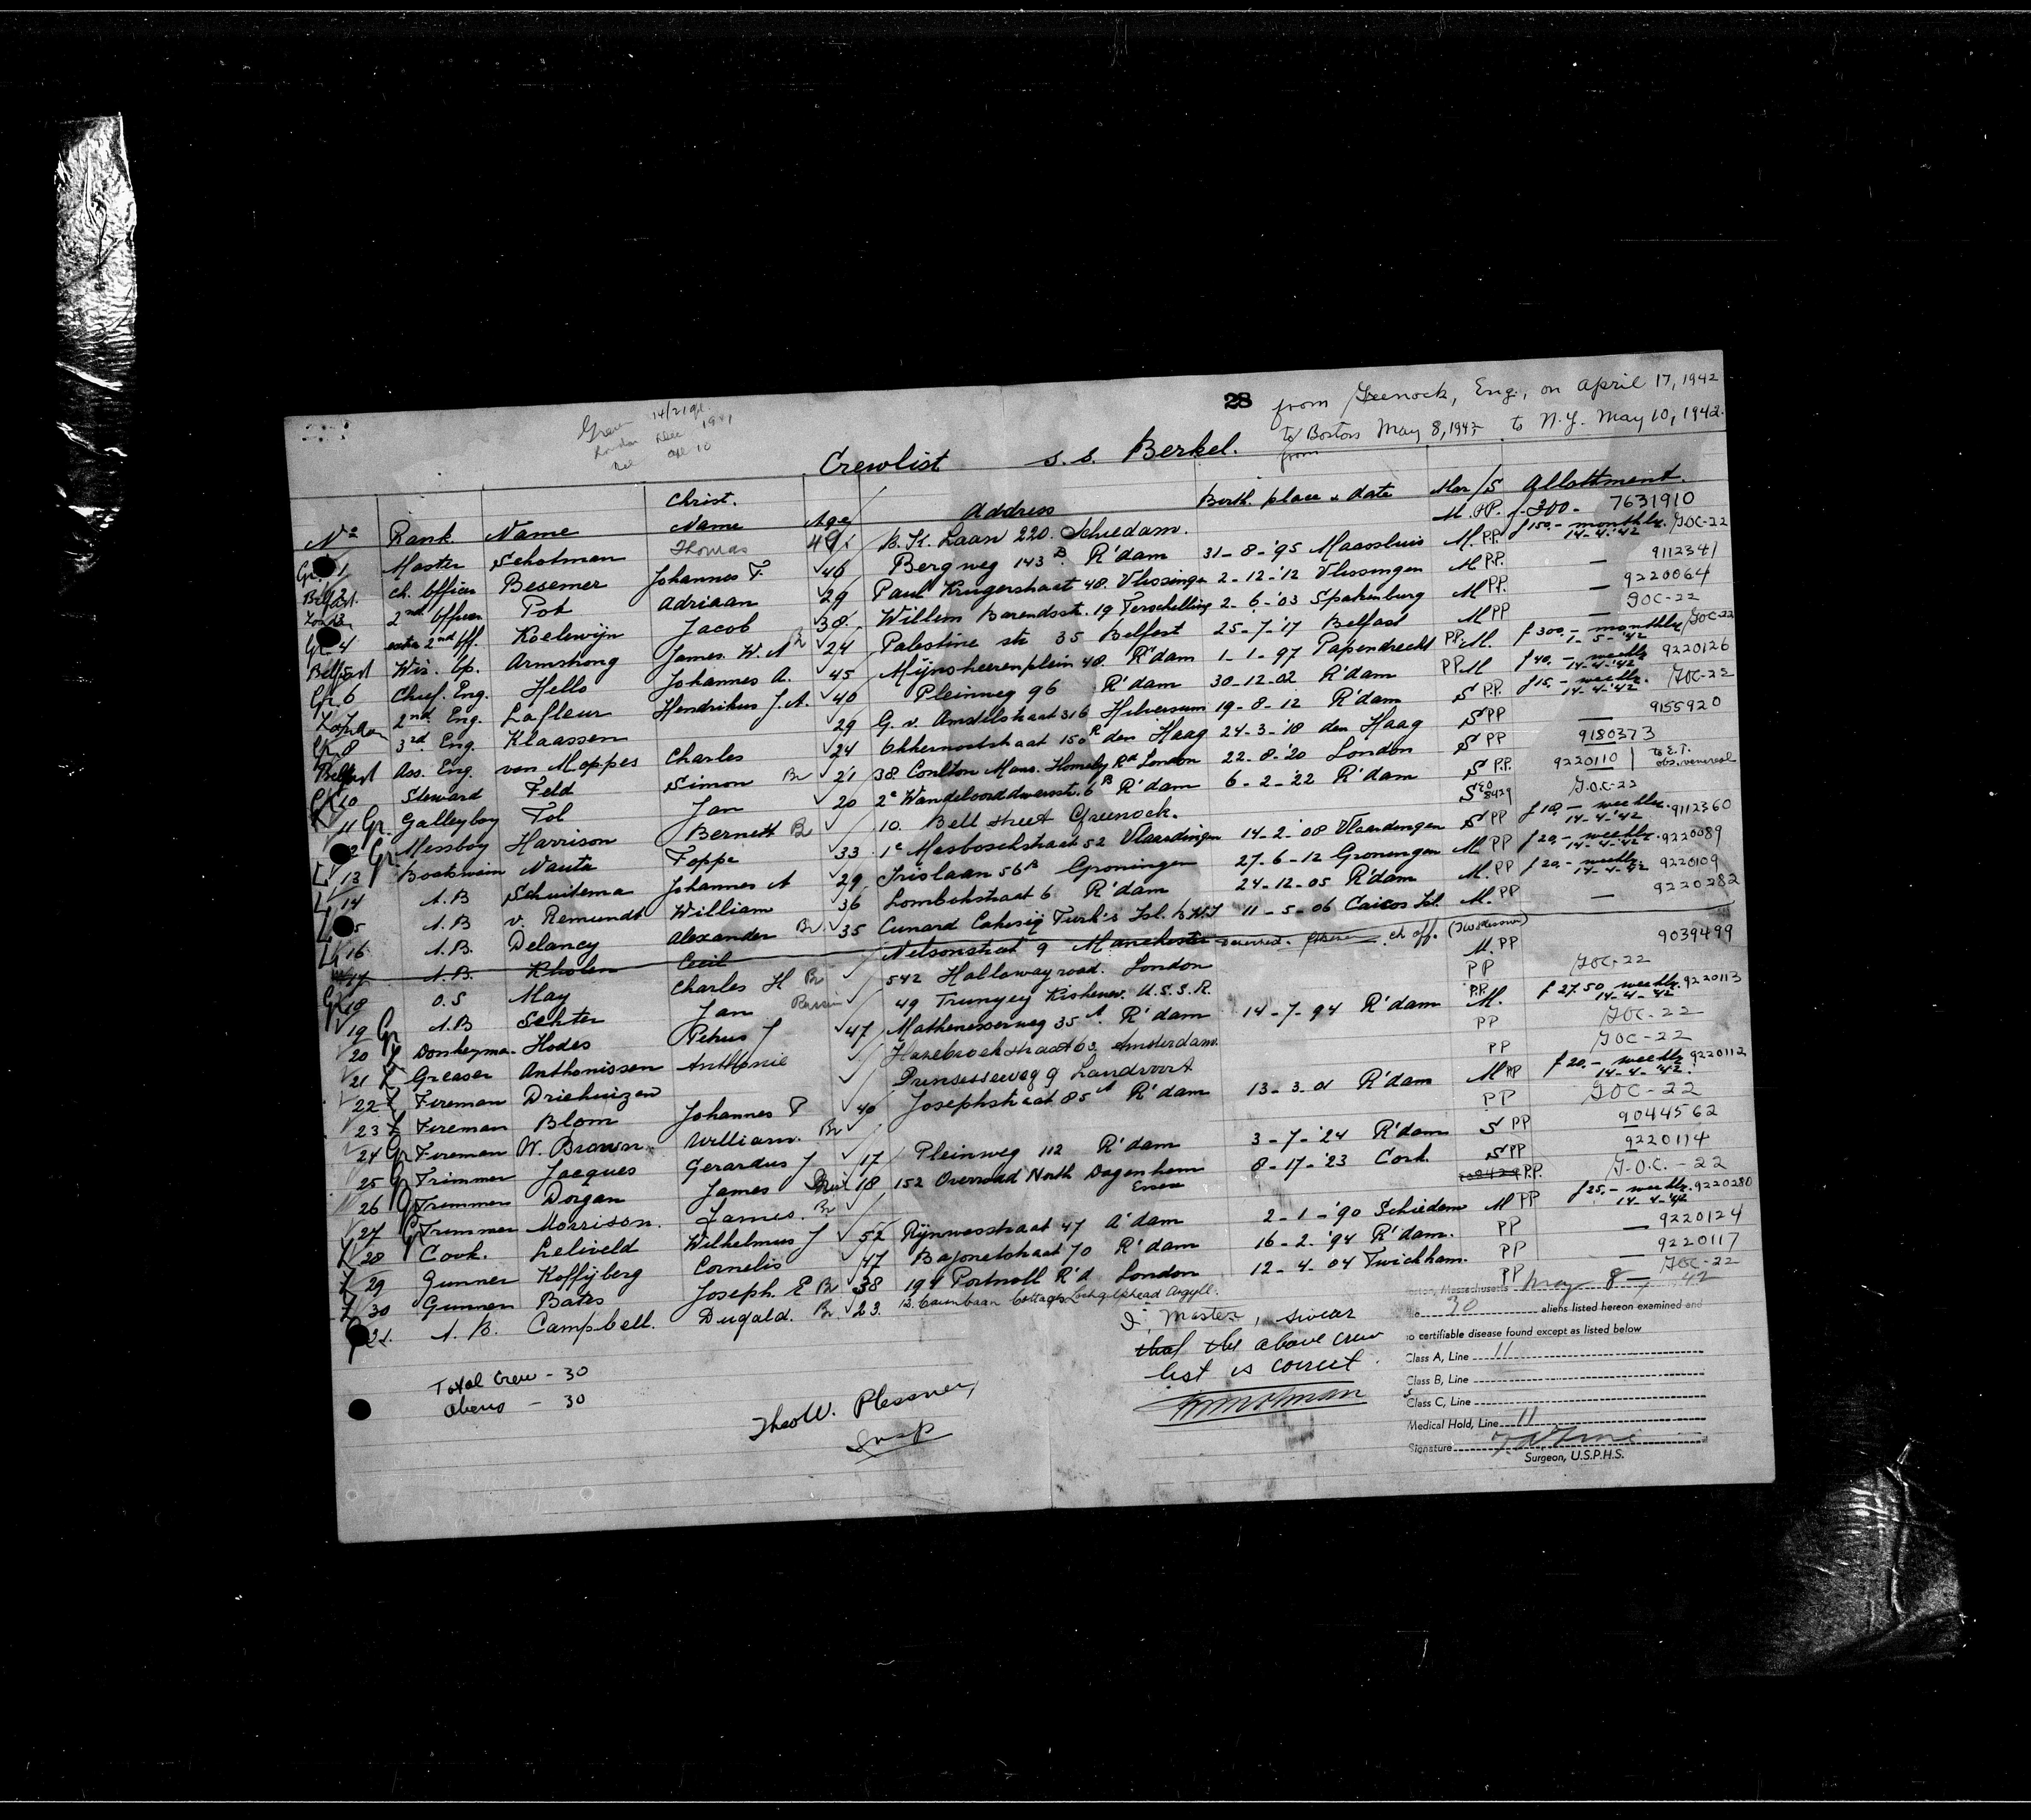 28 from Greenock, Eng., on April 17, 1942
to Boston May 8, 1942 to N.Y. May 10, 1942.
from
Crewlist s.s. Berkel.
No Rank Name Christ. Name Age Address Birth place & date Mar/S Allottment.
1 Master Scholman Thomas 49 B.K. Laan 220. Schiedam. M. PP. f 200.- 7631910
2 ch. Officer Besemer Johannes F. 46 Bergweg 143 B. R'dam 31-8-'95 Maassluis M. PP f 150.- monthly. 14-4-'42 GOC-22
3 2nd Officer Pot Adriaan 29 Paul Krugerstraat 48. Vlissingen 2-12-'12 Vlissingen M PP. — 9112341
4 extra 2nd Off. Koelewijn Jacob 38. Willem Barendsstr. 19 Terschelling 2-6-'03 Spakenburg M PP. — 9220064
Belfast 5 Wir. Op. Armstrong James. W. A Br 24 Palestine str 35 Belfast 25-7-'17 Belfast M PP — GOC-22
Gr 6 Chief. Eng. Hello Johannes A. 45 Mijnsheerenplein 48. R'dam 1-1-97 Papendrecht PP. M. f 300.- monthly 1-5-'42 GOC-22
London 7 2nd Eng. Lafleur Hendrikus J.A. 40 Pleinweg 96 R'dam 30-12-02 R'dam PP M f 40.- weekly 14-4-'42 9220126
8 3rd. Eng. Klaassen 29 G. v. Amstelstraat 316 Hilversum 19-8-12 R'dam S PP. f 15.- weekly. 14-4-'42 GOC-22
Belfast Ass. Eng. van Moppes Charles 24 150 R den Haag 24-3-'18 den Haag S PP — 9155920
10 Steward Feld Simon Br 21 38 Mans. London 22-8-'20 London S PP 9180373
11 Gr. Galleyboy Tol Jan 20 6 B R'dam 6-2-'22 R'dam S P.P. 9220110 to E.I. obs. venereal
12 Gr Messboy Harrison Bernett Br 10. Bell street Greenock. S 8429 G.O.C-22
13 Boatswain Nauta Foppe 33 1e Maasboschstraat 52 Vlaardingen 14-2-'08 Vlaardingen S PP f 18.- weekly. 14-4-'42 9112360
14 A.B Schuitema Johannes A 29 Irislaan 56 B Groningen 27-6-12 Groningen M PP f 20.- weekly. 14-4-'42 9220089
15 A.B v. Remundt William 36 Lombokstraat 6 R'dam 24-12-05 R'dam M. PP f 20.- weekly. 14-4-'42 9220109
16 A.B. Delancy Alexander Br. 35 Turk's Isl. B.W.I 11-5-06 Caicos Isl. M. PP — 9220282
17 A.B. Cecil Nelsonstrat 9 Manchester ch. off.
18 O.S May Charles H Br 542 Hallowayroad. London M. PP 9039499
19 Gr A.B Sekter Jan Russian 49 Trungey Kishenev. U.S.S.R. PP GOC-22
20 Donkeyman Hodes Petrus J 47 Mathenesserweg 35 A. R'dam 14-7-94 R'dam PP M. f 27.50 weekly. 14-4-'42 9220113
21 Greaser Anthonissen Anthonie Hazebroekstraat 63. Amsterdam. PP GOC-22
22 Fireman Driehuizen Prinsesseweg 9 Zandvoort PP GOC-22
23 Fireman Blom Johannes P 40 Josephstraat 85 A R'dam 13-3-01 R'dam M PP f 20.- weekly. 14-4-'42. 9220112
24 Gr Fireman W. Brown William. Br PP GOC-22
25 Gr Trimmer Jacques Gerardus J 17 Pleinweg 112 R'dam 3-7-'24 R'dam S PP 9044562
26 Gr Trimmer Dorgan James 18 152 Overroad North Dagenham Essex 8-17-'23 Cork S PP 9220114
27 Gr Trimmer Morrison. James. Br P.P. G.O.C.-22
28 Cook. Lelieveld Wilhelmus J 52 Rijnwosstraat 47 A'dam 2-1-'90 Schiedam M PP f 25.- weekly. 14-4-'42 9220280
29 Gunner Koffijberg Cornelis 47 Bajonetstraat 70 R'dam 16-2-'94 R'dam. PP — 9220124
30 Gunner Bates Joseph. E Br 38 191 Portnall R'd London 12-4-04 Twickham. PP — 9220117
31. A.B. Campbell. Dugald. Br 23. 12. Cairnbaan Cottages Lochgilphead Argyll. PP GOC-22
Total Crew - 30
Aliens - 30
Theo W. Plessner,
Insp
I, Master, swear
that the above crew
list is correct.
Boston, Massachusetts May 8 - 42
30 aliens listed hereon examined and
no certifiable disease found except as listed below
Class A, Line 11
Class B, Line
Class C, Line
Medical Hold, Line 11
Signature
Surgeon, U.S.P.H.S.